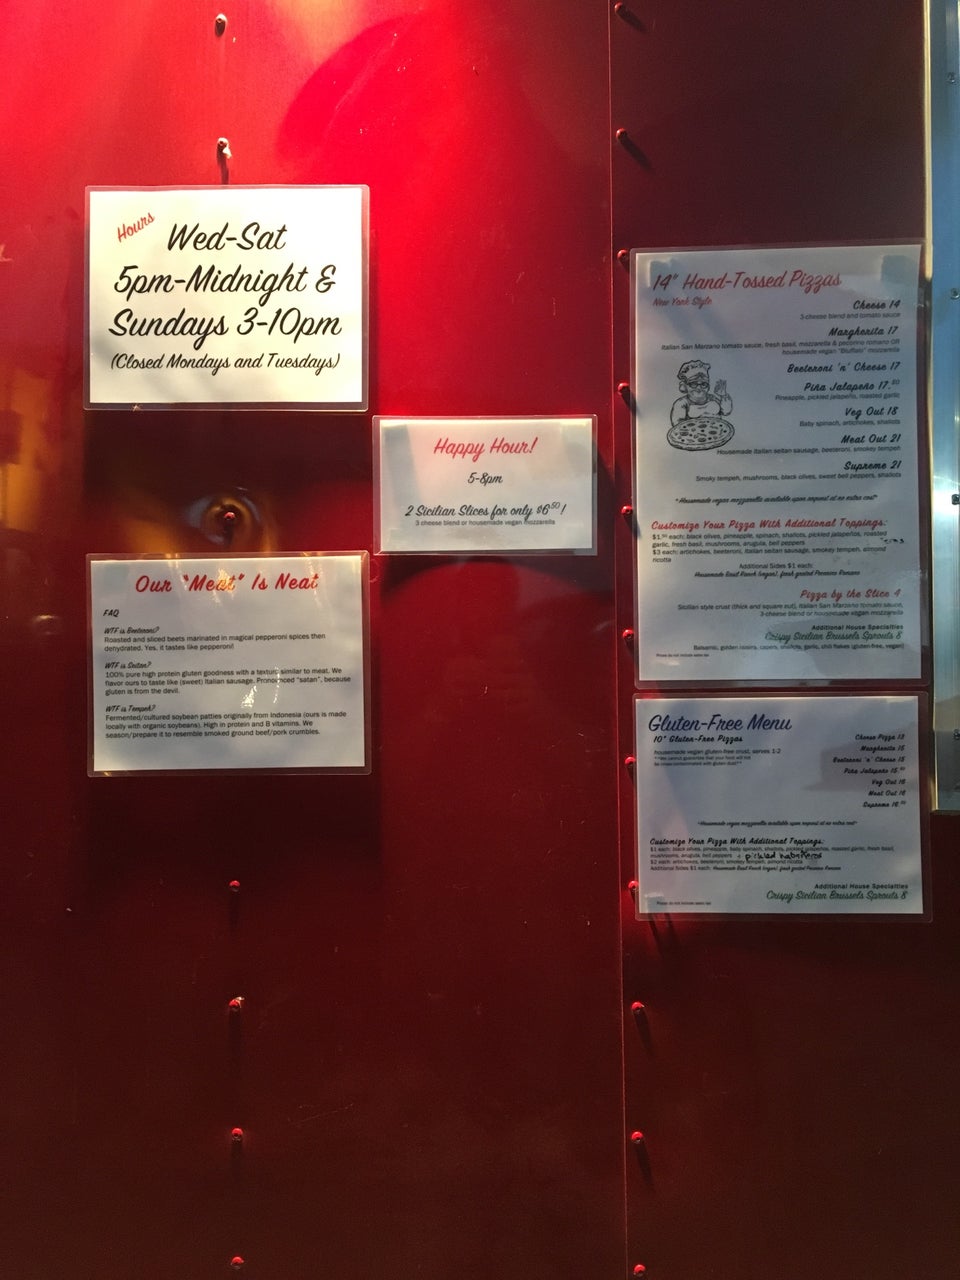 Hours
Wed-Sat
5pm-Midnight &
Sundays 3-10pm
(Closed Mondays and Tuesdays)
Happy Hour!
5-8pm
2 Sicilian Slices for only $6.50!
3 cheese blend or housemade vegan mozzarella
Our "Meat" Is Neat
FAQ
WTF is Beeteroni?
Roasted and sliced beets marinated in magical pepperoni spices then
dehydrated. Yes, it tastes like pepperoni!
WTF is Seitan?
100% pure high protein gluten goodness with a texture similar to meat. We
flavor ours to taste like (sweet) Italian sausage. Pronounced "satan", because
gluten is from the devil.
WTF is Tempeh?
Fermented/cultured soybean patties originally from Indonesia (ours is made
locally with organic soybeans). High in protein and B vitamins. We
season/prepare it to resemble smoked ground beef/pork crumbles.
14" Hand-Tossed Pizzas
New York Style
Cheese 14
3-cheese blend and tomato sauce
Margherita 17
Italian San Marzano tomato sauce, fresh basil, mozzarella & pecorino romano OR
housemade vegan "Bluffalo" mozzarella
Beeteroni 'n' Cheese 17
Piña Jalapeño 17.50
Pineapple, pickled jalapeño, roasted garlic
Veg Out 18
Baby spinach, artichokes, shallots
Meat Out 21
Housemade Italian seitan sausage, beeteroni, smokey tempeh
Supreme 21
Smoky tempeh, mushrooms, black olives, sweet bell peppers, shallots
*Housemade vegan mozzarella available upon request at no extra cost*
Customize Your Pizza With Additional Toppings:
$1.50 each: black olives, pineapple, spinach, shallots, pickled jalapeños, roasted
garlic, fresh basil, mushrooms, arugula, bell peppers
$3 each: artichokes, beeteroni, italian seitan sausage, smokey tempeh, almond
ricotta
Additional Sides $1 each:
Housemade Basil Ranch (vegan), fresh grated Pecorino Romano
Pizza by the Slice 4
Sicilian style crust (thick and square cut), Italian San Marzano tomato sauce,
3-cheese blend or housemade vegan mozzarella
Additional House Specialties
Crispy Sicilian Brussels Sprouts 8
Balsamic, golden raisins, capers, shallots, garlic, chili flakes (gluten-free, vegan)
Prices do not include sales tax
Gluten-Free Menu
10" Gluten-Free Pizzas
housemade vegan gluten-free crust, serves 1-2
**We cannot guarantee that your food will not
be cross-contaminated with gluten dust!**
Cheese Pizza 13
Margherita 15
Beeteroni 'n' Cheese 15
Piña Jalapeño 15.50
Veg Out 16
Meat Out 16
Supreme 16.50
*Housemade vegan mozzarella available upon request at no extra cost*
Customize Your Pizza With Additional Toppings:
$1 each: black olives, pineapple, baby spinach, shallots, pickled jalapeños, roasted garlic, fresh basil,
mushrooms, arugula, bell peppers + pickled habañeros
$2 each: artichokes, beeteroni, smokey tempeh, almond ricotta
Additional Sides $1 each: Housemade Basil Ranch (vegan), fresh grated Pecorino Romano
Additional House Specialties
Crispy Sicilian Brussels Sprouts 8
Prices do not include sales tax